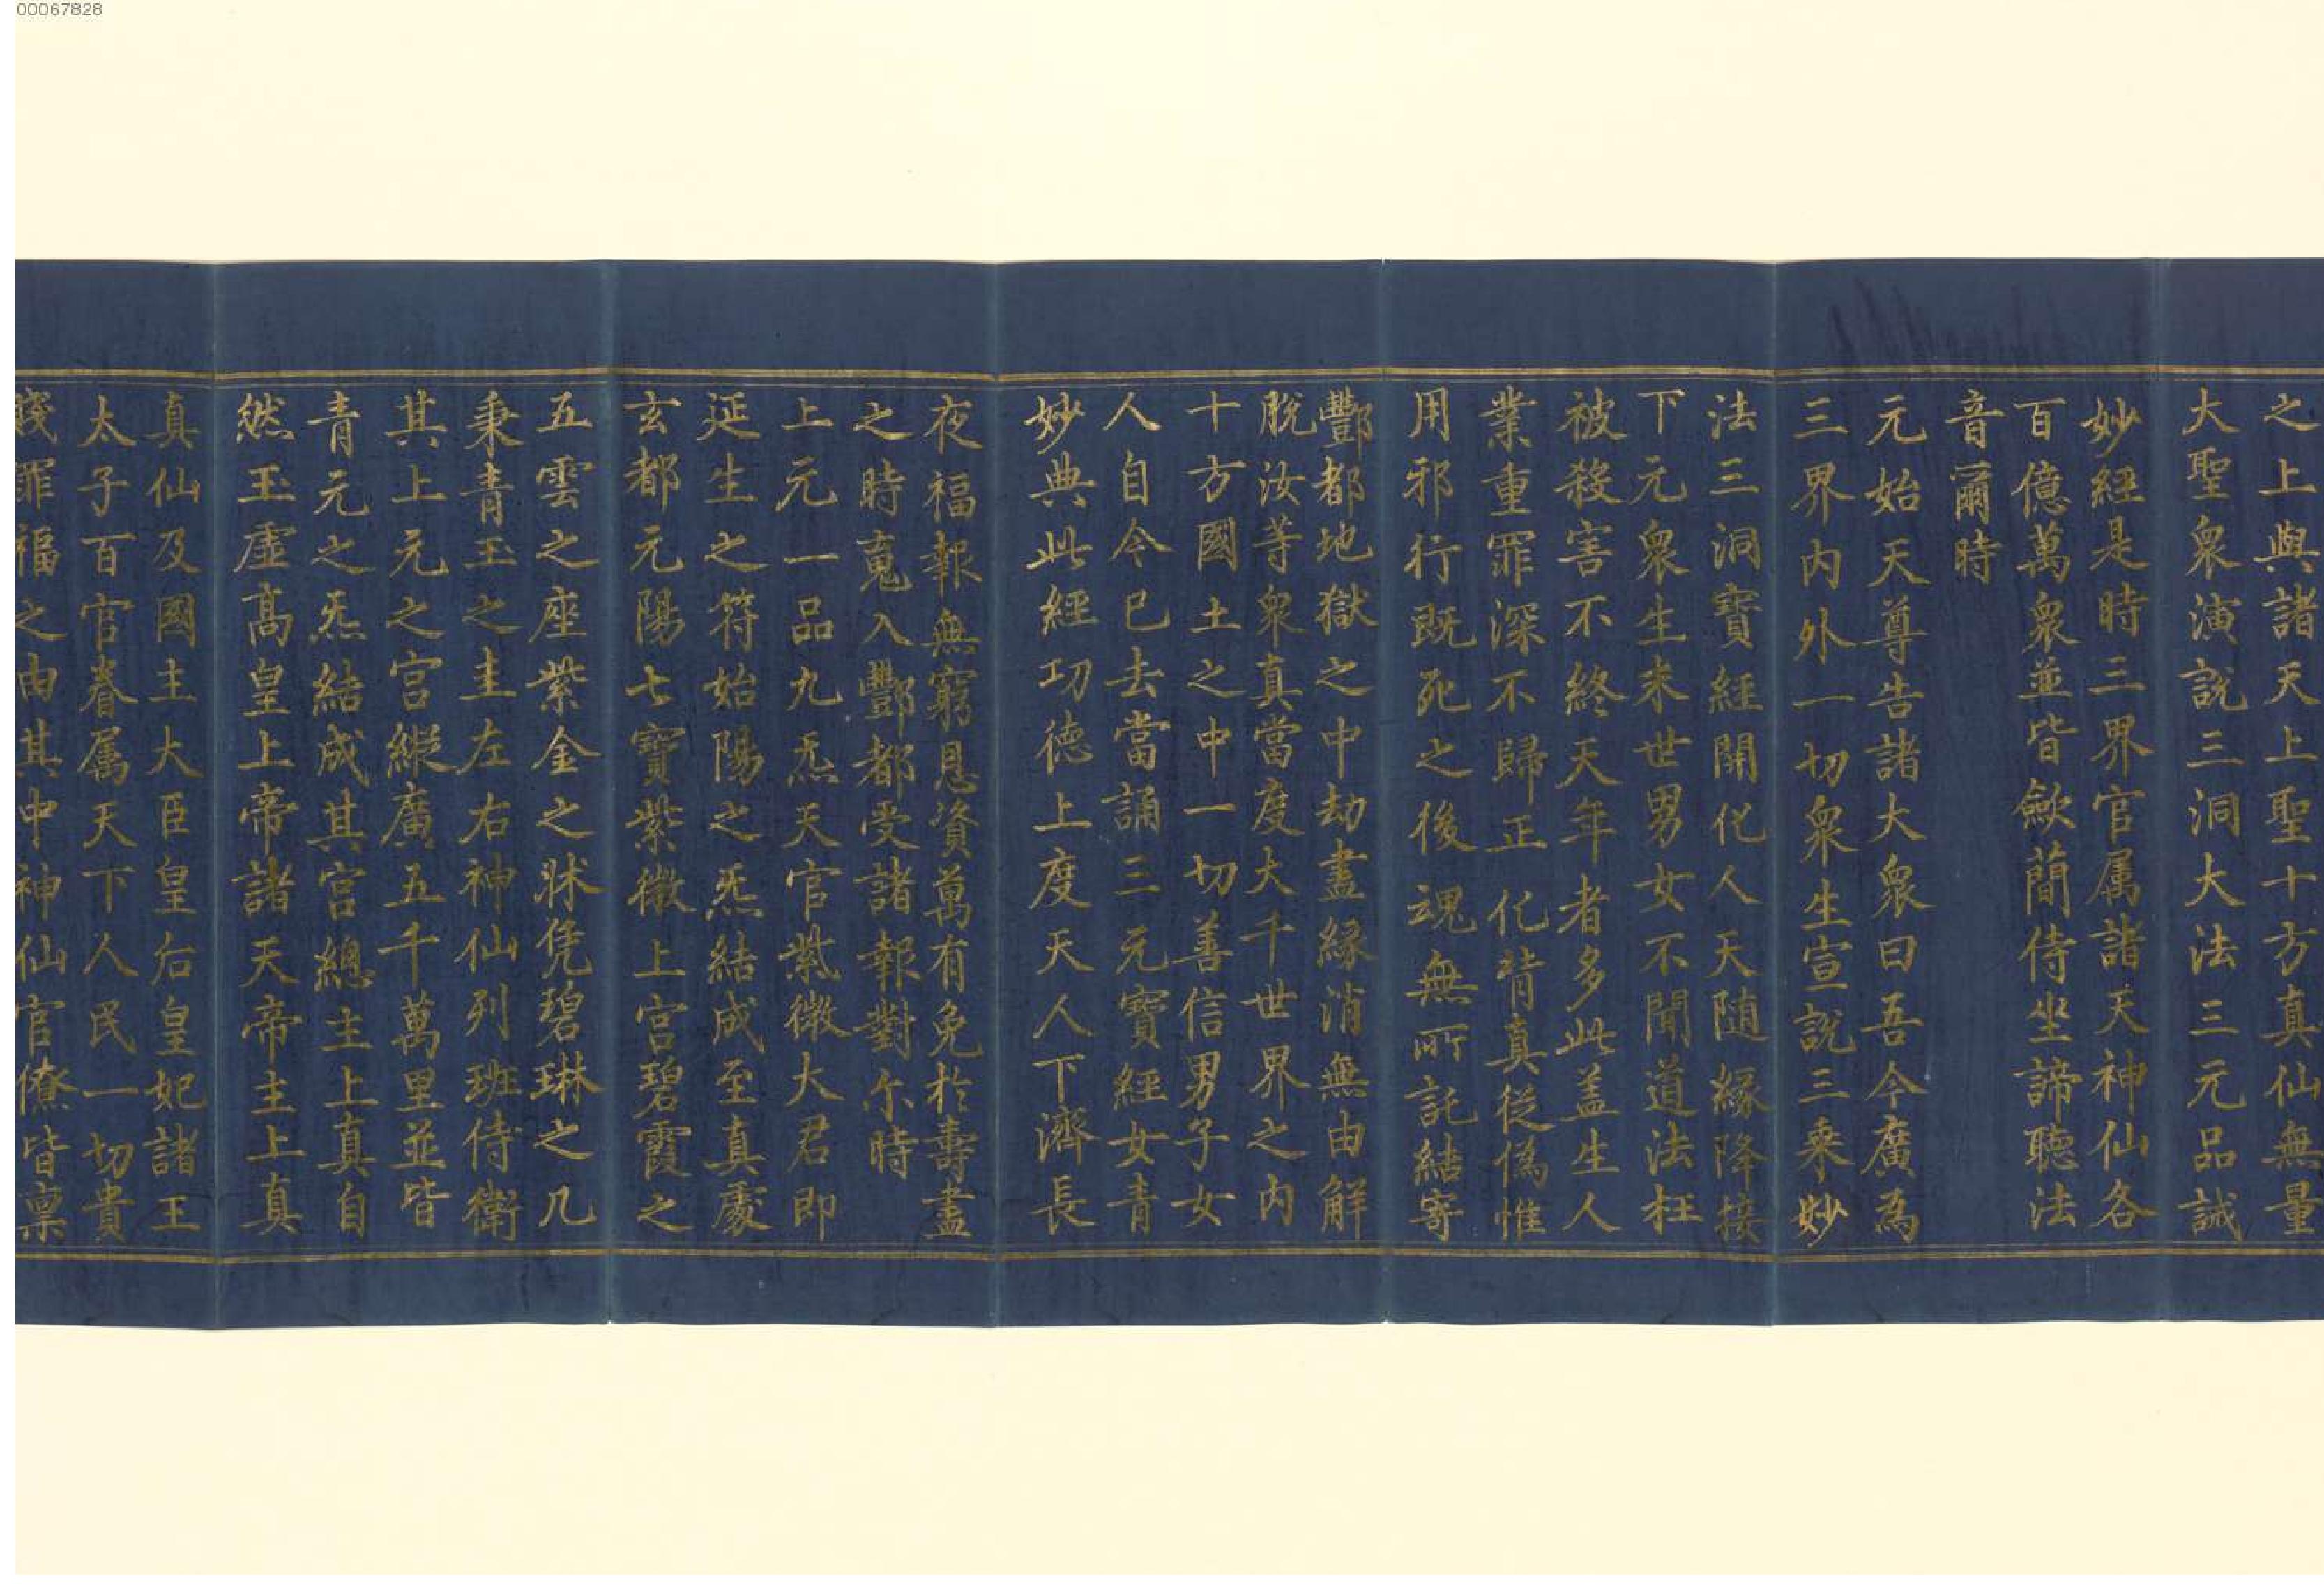 00067828
之上與諸天上聖十方真仙無量
大聖衆演說三洞大法三元品誡
妙經是時三界官属諸天神仙各
百億萬衆並皆歛蕳侍坐諦聽法
音爾時
元始天尊告諸大衆曰吾今廣為
三界内外一切衆生宣說三乘妙
法三洞寶經開化人天随緣降接
下元衆生未世男女不聞道法枉
被殺害不終天年者多此盖生人
業重罪深不歸正化背真従偽惟
用邪行既死之後魂無所託結寄
酆都地獄之中劫盡緣消無由解
脫汝等衆真當度大千世界之内
十方國土之中一切善信男子女
人自今已去當誦三元寶經女青
妙典此經功德上度天人下濟長
夜福報無窮恩資萬有免於壽盡
之時䰟入酆都受諸報對尔時
上元一品九炁天官紫微大君即
延生之符始陽之炁結成至真處
玄都元陽七寶紫微上宫碧霞之
五雲之座紫金之牀凭碧琳之几
秉青玉之圭左右神仙列班侍衛
其上元之宫縱廣五千萬里並皆
青元之炁結成其宫總主上真自
然玉虛髙皇上帝諸天帝主上真
真仙及國主大臣皇后皇妃諸王
太子百官眷属天下人民一切貴
賤罪福之由其中神仙官僚皆禀